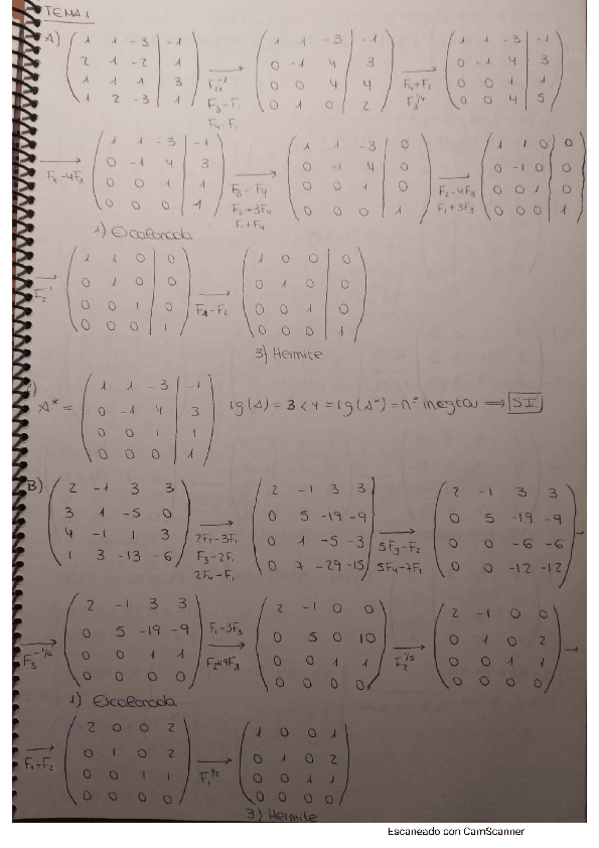 TEMA 1
A) ( 1 1 -3 | -1 ; 2 1 -2 | 1 ; 1 1 1 | 3 ; 1 2 -3 | 1 ) → F3-F1 F4-F1 ( 1 1 -3 | -1 ; 0 -1 4 | 3 ; 0 0 4 | 4 ; 0 1 0 | 2 ) → F4+F2 F3^1/4 ( 1 1 -3 | -1 ; 0 -1 4 | 3 ; 0 0 1 | 1 ; 0 0 4 | 5 )
→ F4-4F3 ( 1 1 -3 | -1 ; 0 -1 4 | 3 ; 0 0 1 | 1 ; 0 0 0 | 1 ) → F3-F4 F1+F4 ( 1 1 -3 | 0 ; 0 -1 4 | 0 ; 0 0 1 | 0 ; 0 0 0 | 1 ) → F2-4F3 F1+3F3 ( 1 1 0 | 0 ; 0 -1 0 | 0 ; 0 0 1 | 0 ; 0 0 0 | 1 )
1) Escalonada
→ F2^-1 ( 1 1 0 | 0 ; 0 1 0 | 0 ; 0 0 1 | 0 ; 0 0 0 | 1 ) → F1-F2 ( 1 0 0 | 0 ; 0 1 0 | 0 ; 0 0 1 | 0 ; 0 0 0 | 1 )
3) Hermite
A* = ( 1 1 -3 | -1 ; 0 -1 4 | 3 ; 0 0 1 | 1 ; 0 0 0 | 1 ) rg(A) = 3 < 4 = rg(A*) = nº incógnitas ⇒ SI
B) ( 2 -1 3 3 ; 3 1 -5 0 ; 4 -1 1 3 ; 1 3 -13 -6 ) → 2F2-3F1 F3-2F1 2F4-F1 ( 2 -1 3 3 ; 0 5 -19 -9 ; 0 1 -5 -3 ; 0 7 -29 -15 ) → 5F3-F2 ( 2 -1 3 3 ; 0 5 -19 -9 ; 0 0 -6 -6 ; 0 0 -12 -12 ) →
→ F3^-1/6 ( 2 -1 3 3 ; 0 5 -19 -9 ; 0 0 1 1 ; 0 0 0 0 ) → F1-3F3 F2+19F3 ( 2 -1 0 0 ; 0 5 0 10 ; 0 0 1 1 ; 0 0 0 0 ) → F2^1/5 ( 2 -1 0 0 ; 0 1 0 2 ; 0 0 1 1 ; 0 0 0 0 ) →
1) Escalonada
→ F1+F2 ( 2 0 0 2 ; 0 1 0 2 ; 0 0 1 1 ; 0 0 0 0 ) → F1^1/2 ( 1 0 0 1 ; 0 1 0 2 ; 0 0 1 1 ; 0 0 0 0 )
3) Hermite
Escaneado con CamScanner